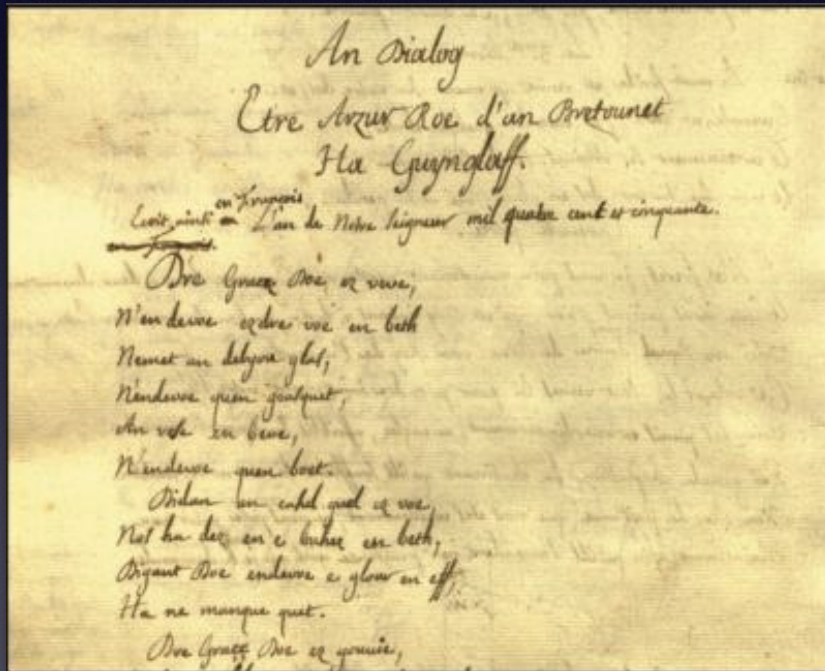 An Dialog
Etre Arzur Roe d'an Bretounet
Ha Guynglaff.
en françois
Ecrit ainsi L'an de Notre Seigneur mil quatre cent et cinquante.
Dre Gracz Doe ez veve,
N'endevoe ezdre voe en beth
Nemet an delyou glas,
N'endevoe quen goasquet,
An vese en beve,
N'endevoe quen boet.
Didan un cabel guel ez voe
Nos ha dez en e buhez en beth,
Digant Doe endevoe e gloar en eff,
Ha ne manque quet.
Dre Gracz Doe ez gouuie,